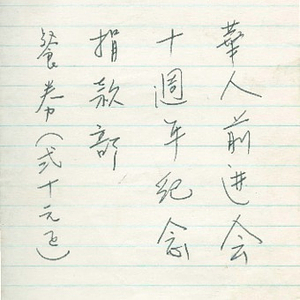 華人前进会
十週年纪念
捐款部
餐券(弍十元正)